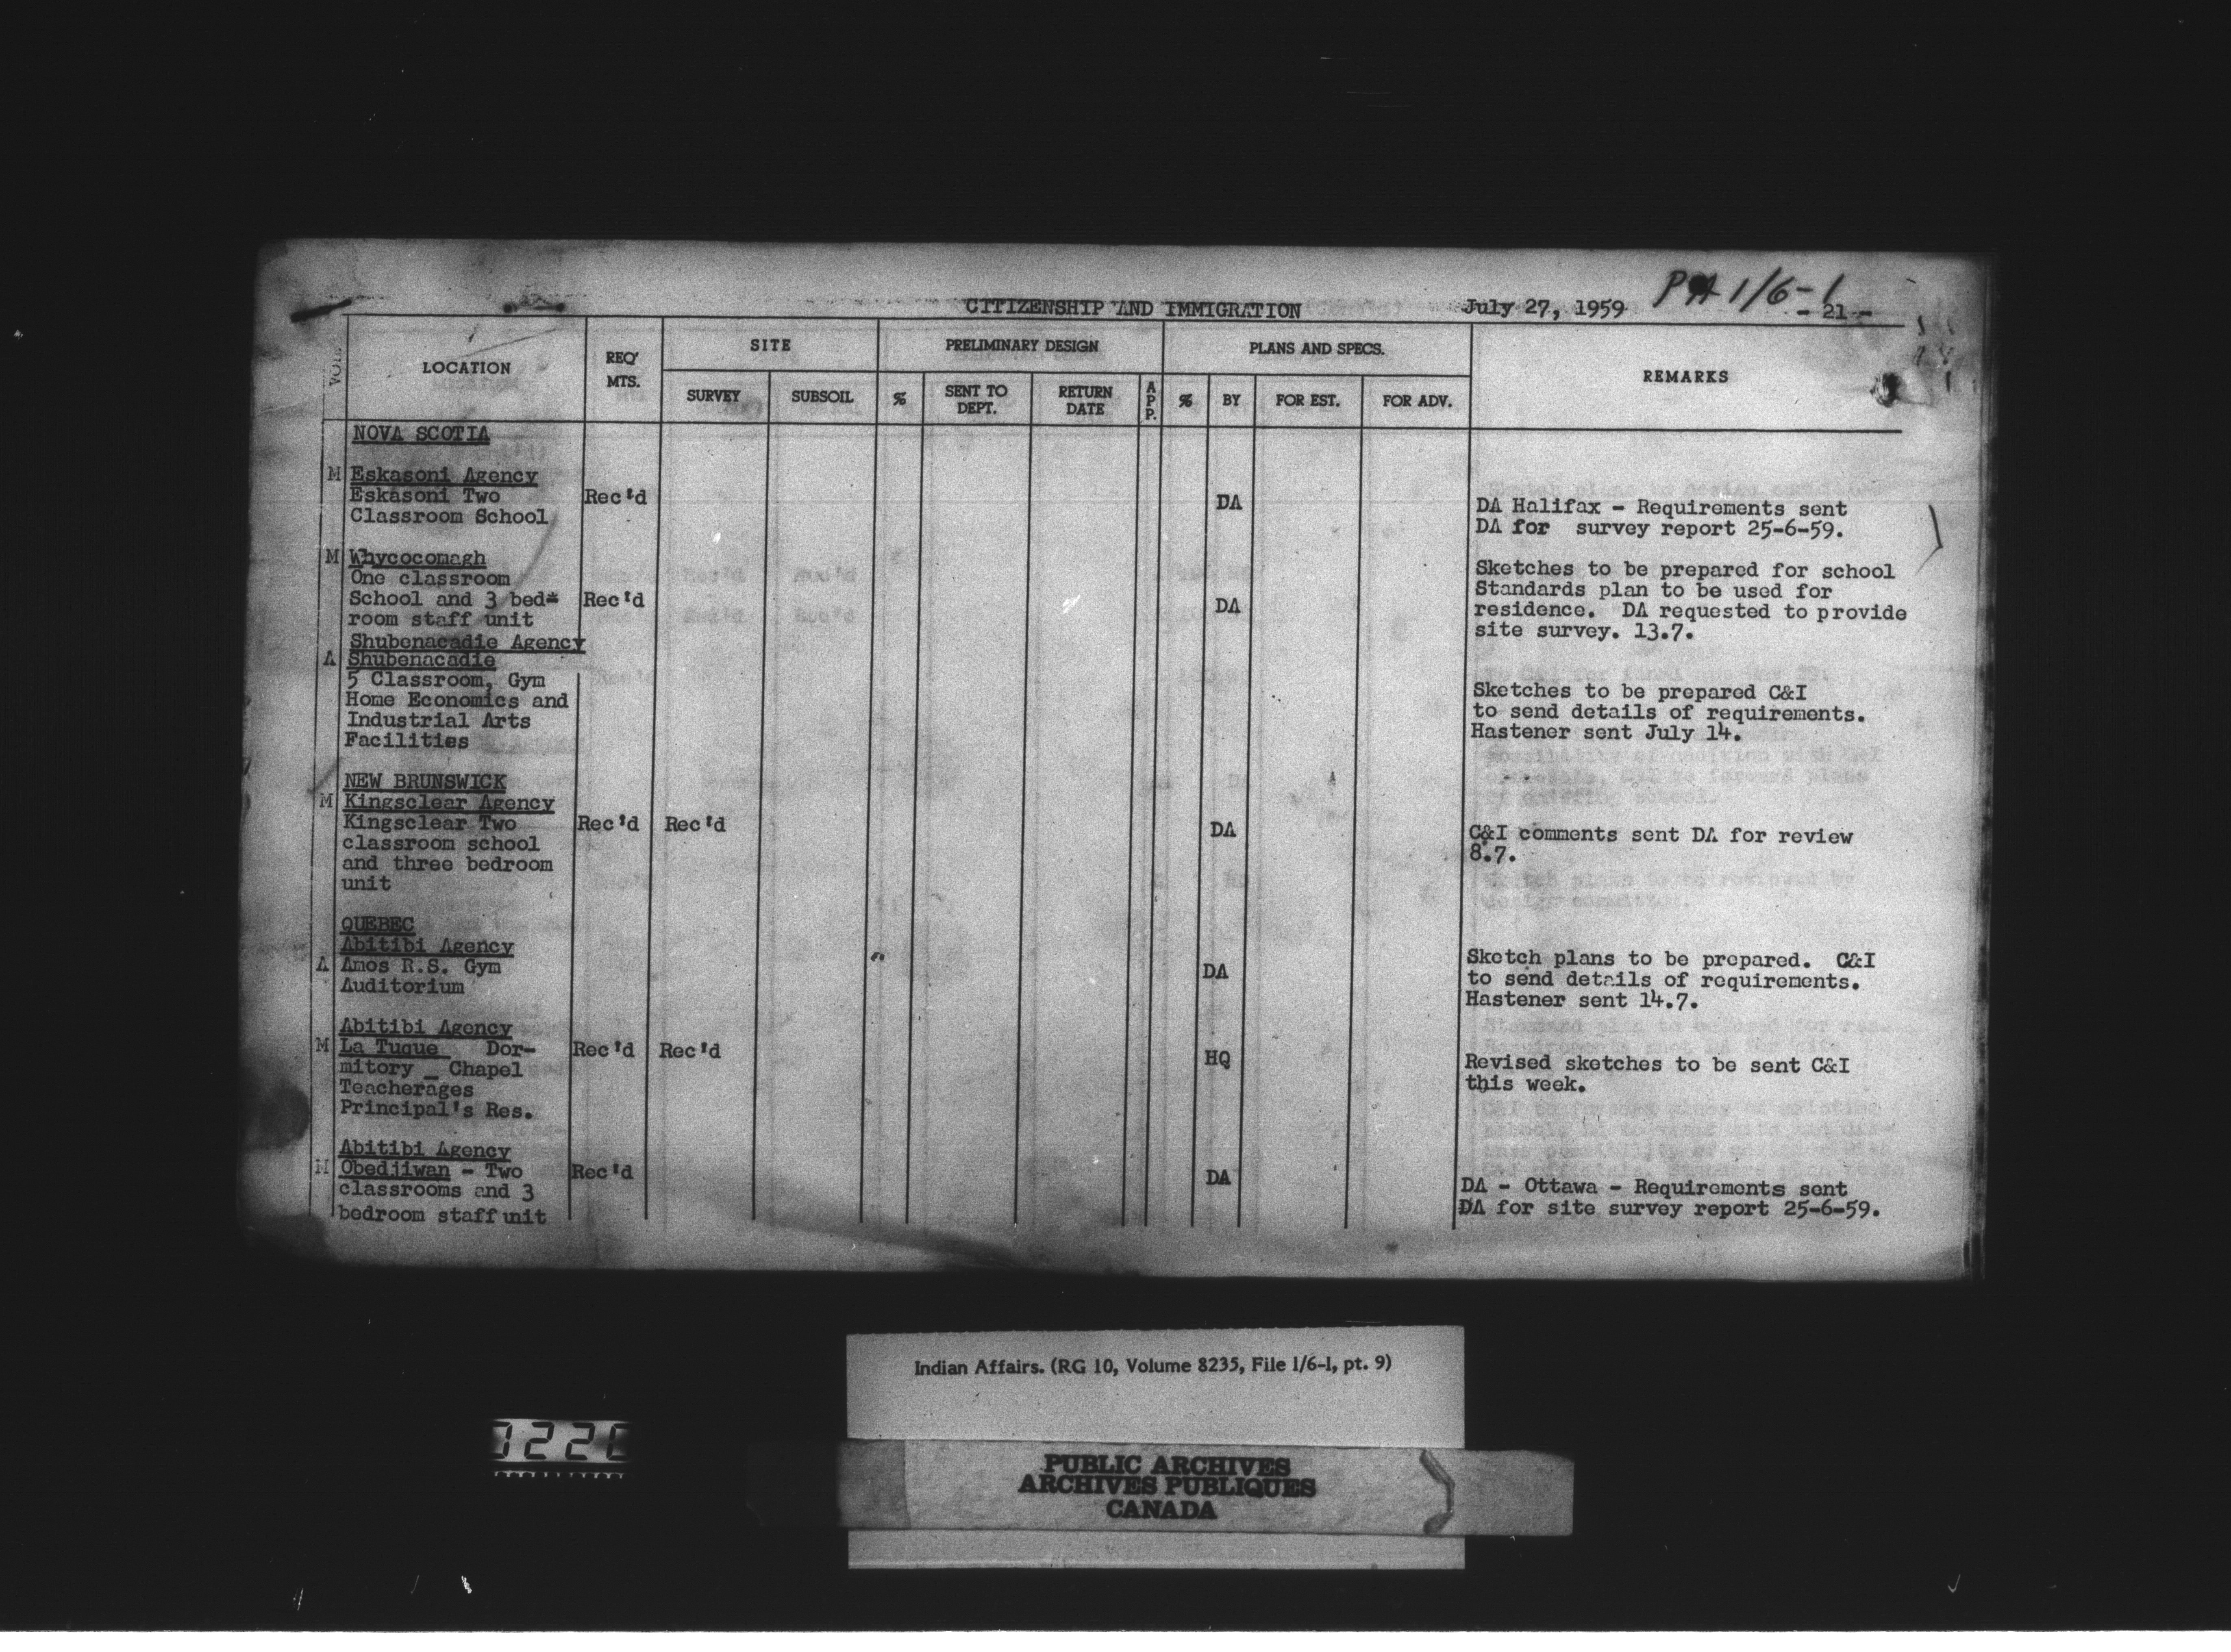 PA 1/6-1
CITIZENSHIP AND IMMIGRATION July 27, 1959 - 21 -
LOCATION REQ' MTS. SITE PRELIMINARY DESIGN PLANS AND SPECS. REMARKS
SURVEY SUBSOIL % SENT TO DEPT. RETURN DATE APP. % BY FOR EST. FOR ADV.
NOVA SCOTIA
M Eskasoni Agency
Eskasoni Two Rec'd DA DA Halifax - Requirements sent
Classroom School DA for survey report 25-6-59.
M Whycocomagh
One classroom Sketches to be prepared for school
School and 3 bed* Rec'd DA Standards plan to be used for
room staff unit residence. DA requested to provide
site survey. 13.7.
Shubenacadie Agency
A Shubenacadie
5 Classroom, Gym Sketches to be prepared C&I
Home Economics and to send details of requirements.
Industrial Arts Hastener sent July 14.
Facilities
NEW BRUNSWICK
M Kingsclear Agency
Kingsclear Two Rec'd Rec'd DA C&I comments sent DA for review
classroom school 8.7.
and three bedroom
unit
QUEBEC
Abitibi Agency Sketch plans to be prepared. C&I
A Amos R.S. Gym DA to send details of requirements.
Auditorium Hastener sent 14.7.
Abitibi Agency
M La Tuque Dor- Rec'd Rec'd HQ Revised sketches to be sent C&I
mitory _ Chapel this week.
Teacherages
Principal's Res.
Abitibi Agency
M Obedjiwan - Two Rec'd DA DA - Ottawa - Requirements sent
classrooms and 3 DA for site survey report 25-6-59.
bedroom staff unit
Indian Affairs. (RG 10, Volume 8235, File 1/6-1, pt. 9)
PUBLIC ARCHIVES
ARCHIVES PUBLIQUES
CANADA